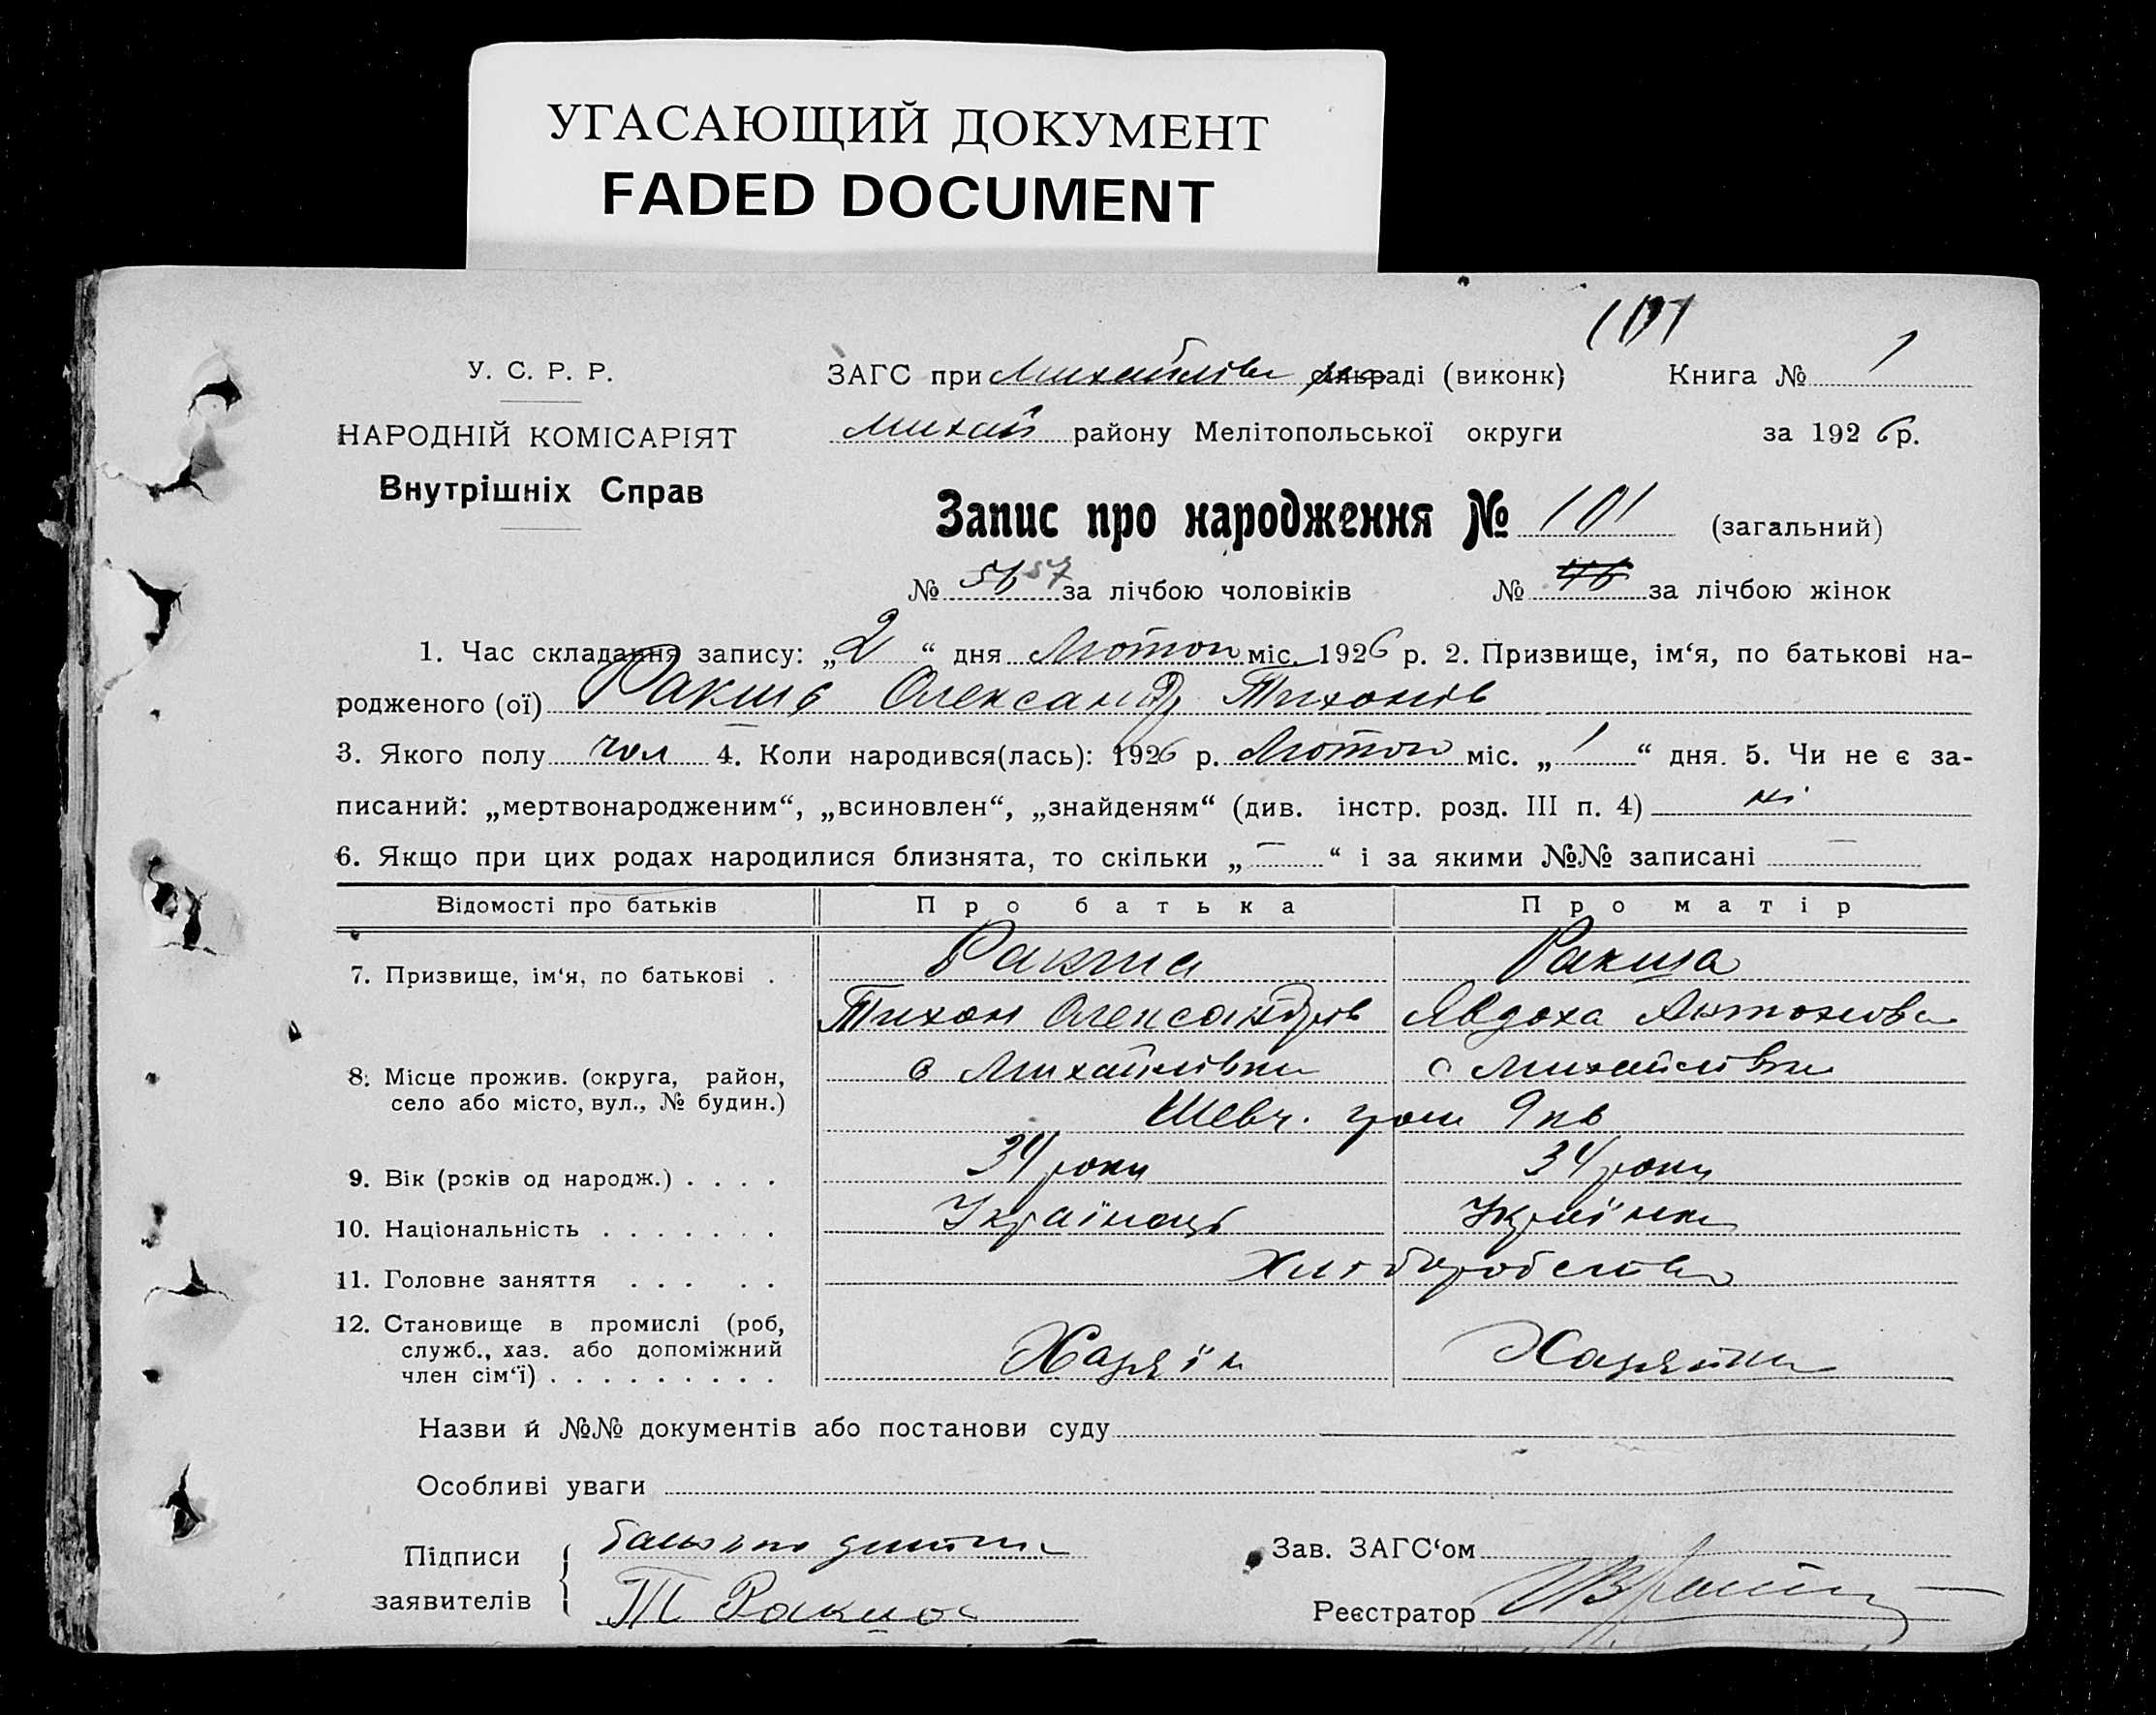 УГАСАЮЩИЙ ДОКУМЕНТ
FADED DOCUMENT
101
У. С. Р. Р.
НАРОДНІЙ КОМІСАРІЯТ
Внутрішніх Справ
ЗАГС при Михайлівс раді (виконк)
Книга № 1
Михай району Мелітопольської округи
за 1926 р.
Запис про народження № 101 (загальний)
№ 56 57 за лічбою чоловіків № 46 за лічбою жінок
1. Час складання запису: „2“ дня Лютого міс. 1926 р. 2. Призвище, ім‘я, по батькові на-
родженого (ої) Ракша Олександр Тихонів
3. Якого полу чол 4. Коли народився(лась): 1926 р. Лютого міс. „1“ дня. 5. Чи не є за-
писаний: „мертвонародженим“, „всиновлен“, „знайденям“ (див. інстр. розд. III п. 4) ні
6. Якщо при цих родах народилися близнята, то скільки „—“ і за якими №№ записані —
Відомості про батьків Про батька Про матір
7. Призвище, ім‘я, по батькові . Ракша Ракша
Тихон Олександрів Явдоха Антонова
8. Місце прожив. (округа, район, с Михайлівка с Михайлівка
село або місто, вул., № будин.) Шевч. гром 9 кв
9. Вік (років од народж.) . . . . 34 роки 34 роки
10. Національність . . . . . . . Українець Українка
11. Головне заняття . . . . . Хліборобство
12. Становище в промислі (роб,
служб., хаз. або допоміжний Хазяїн Хазяйка
член сім‘ї) . . . . . . . . .
Назви й №№ документів або постанови суду
Особливі уваги
Підписи батько дитини
заявителів Т Ракша
Зав. ЗАГС‘ом
Реєстратор